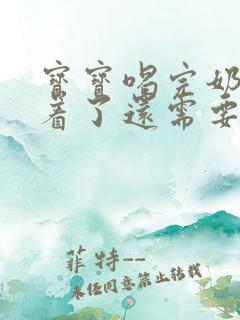 寶寶喝完奶
着了還需要
菲特--
未经同意禁止转载